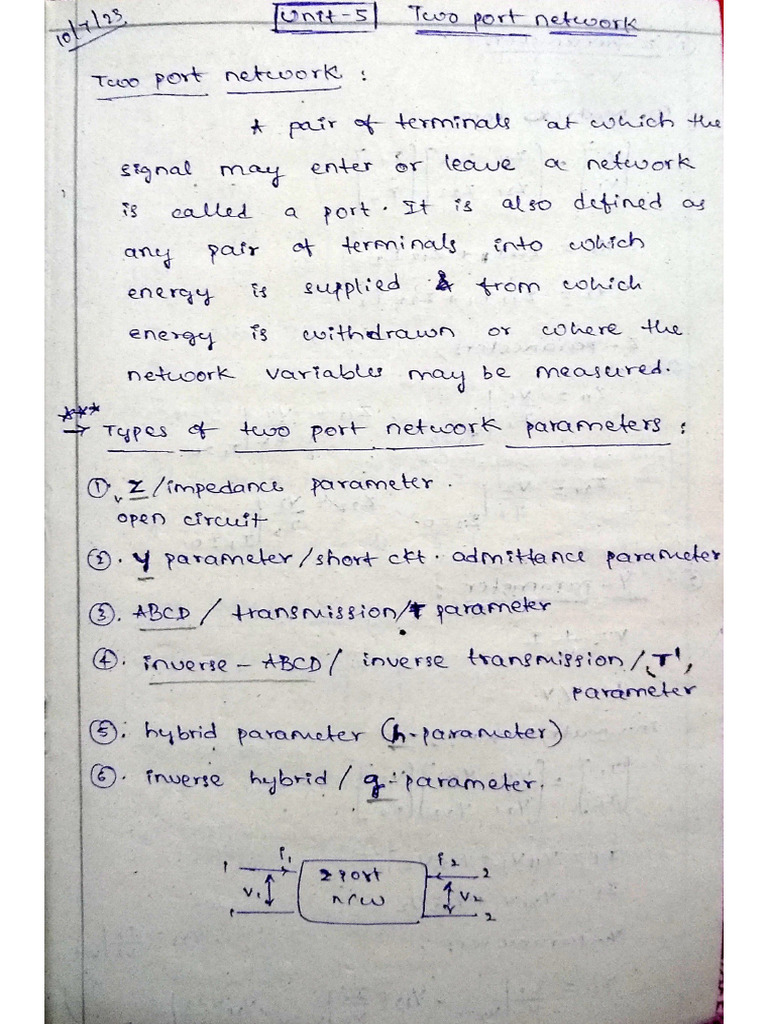 10/7/23.
Unit-5 Two port network
Two port network :
A pair of terminals at which the
signal may enter or leave a network
is called a port. It is also defined as
any pair of terminals into which
energy is supplied & from which
energy is withdrawn or where the
network variables may be measured.
*** → Types of two port network parameters :
①. Z/impedance parameter.
open circuit
②. Y parameter/short ckt. admittance parameter
③. ABCD / transmission/T parameter
④. inverse - ABCD/ inverse transmission/T',
parameter
⑤. hybrid parameter (h-parameter)
⑥. inverse hybrid / g-parameter.
1 i1 i2 2
V1 2 port V2
n/w
1' 2